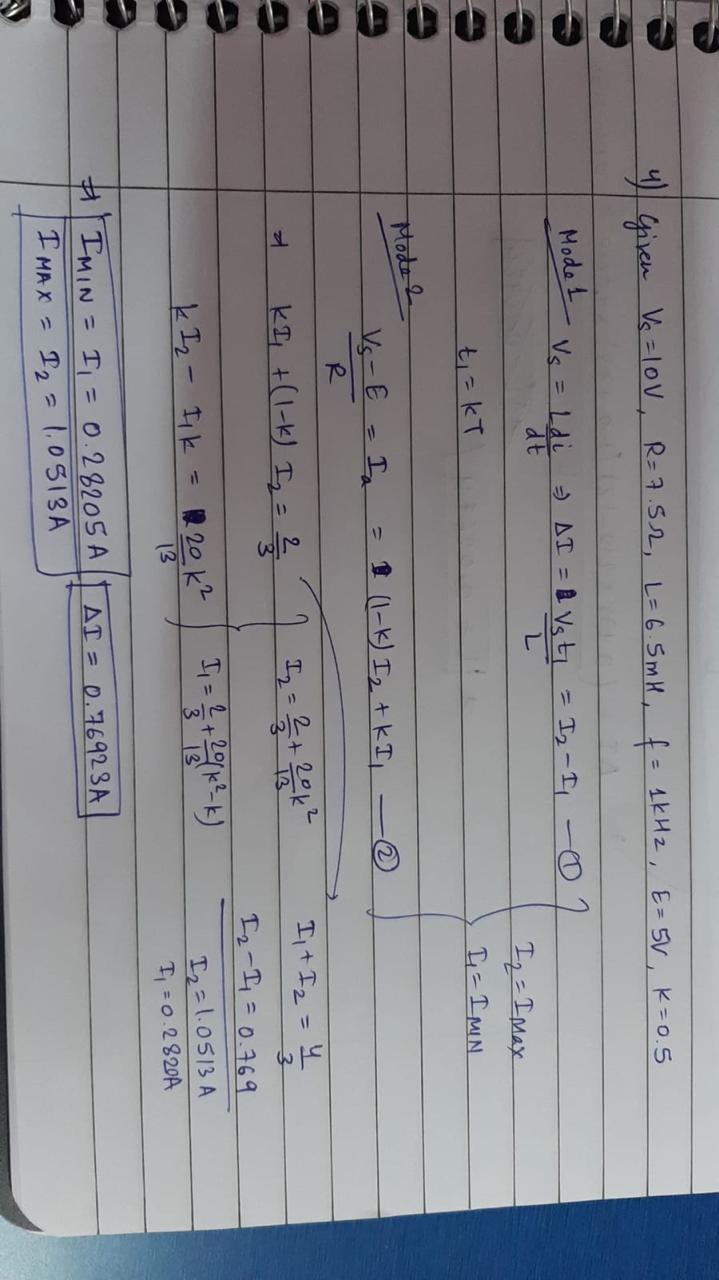 4) Given Vs = 10V, R = 7.5Ω, L = 6.5mH, f = 1kHz, E = 5V, K = 0.5
Mode 1 Vs = L di/dt ⇒ ΔI = Vs t₁/L = I₂ - I₁ — ①
t₁ = kT
I₂ = I MAX
I₁ = I MIN
Mode 2
Vs - E/R = Ia = (1-k) I₂ + k I₁ — ②
⇒ kI₁ + (1-k) I₂ = 2/3
I₂ = 2/3 + 20/13 k²
I₁ + I₂ = 4/3
kI₂ - I₁k = 20/13 k²
I₁ = 2/3 + 20/13 (k² - k)
I₂ - I₁ = 0.769
I₂ = 1.0513A
I₁ = 0.2820A
⇒ I MIN = I₁ = 0.28205A ΔI = 0.76923A
I MAX = I₂ = 1.0513A